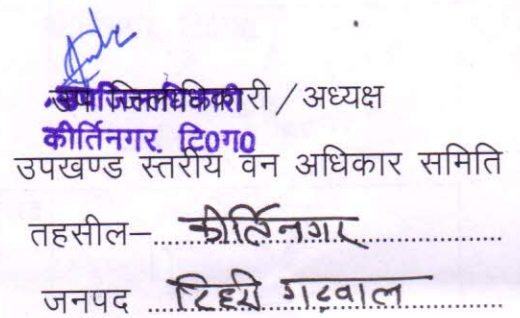 उप जिलाधिकारी / अध्यक्ष
उपजिलाधिकारी
कीर्तिनगर, टि०ग०
उपखण्ड स्तरीय वन अधिकार समिति
तहसील– कीर्तिनगर
जनपद टिहरी गढवाल